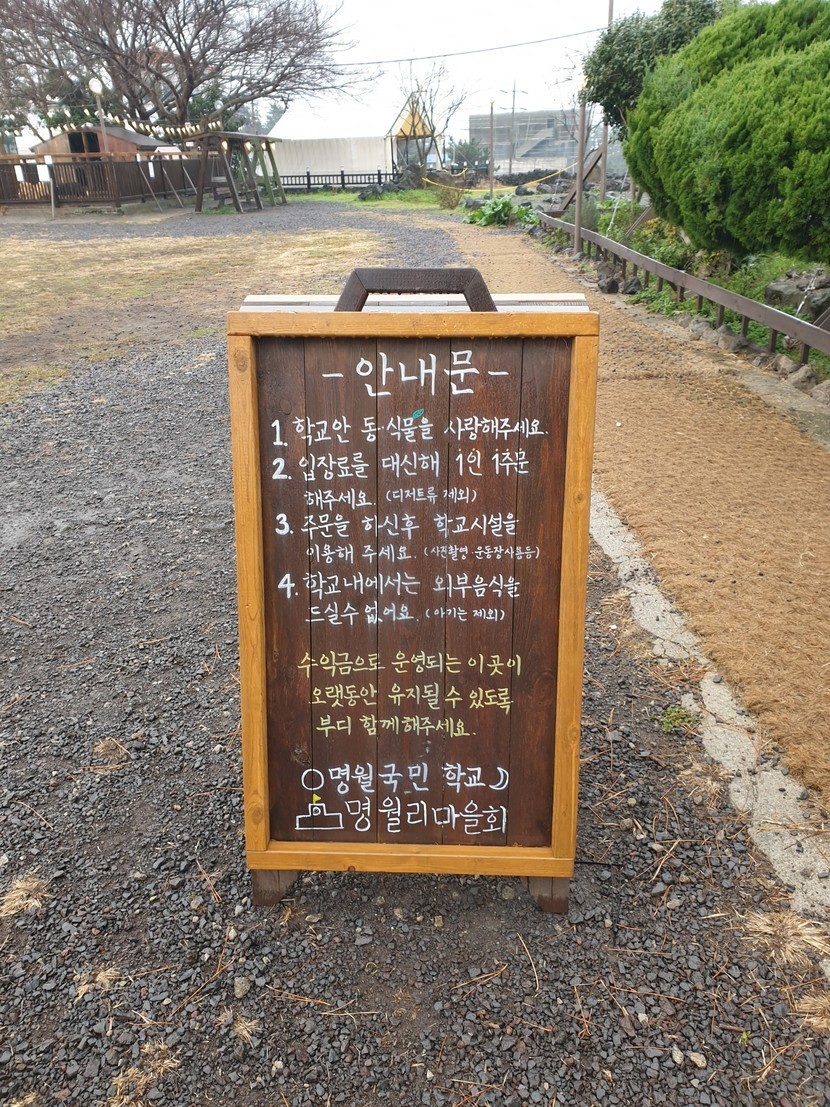 -안내문-
1. 학교안 동·식물을 사랑해주세요.
2. 입장료를 대신해 1인 1주문
해주세요. (디저트류 제외)
3. 주문을 하신후 학교시설을
이용해 주세요. (사진촬영·운동장사용등)
4. 학교내에서는 외부음식을
드실수 없어요. (아기는 제외)
수익금으로 운영되는 이곳이
오랫동안 유지될 수 있도록
부디 함께해주세요.
명월국민 학교
명월리마을회